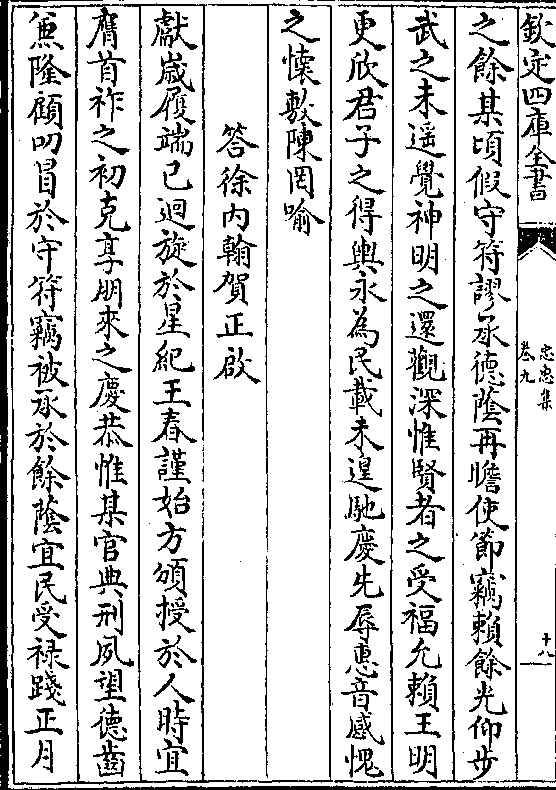 欽定四庫全書
忠惠集
卷九
十八
之餘某頃假守符謬承德蔭再瞻使節竊賴餘光仰步
武之未遥覺神明之還觀深惟賢者之受福允賴王明
更欣君子之得輿永為民載未遑馳慶先辱惠音感愧
之懷敷陳罔喻
答徐内翰賀正啟
獻嵗履端已迴旋於星紀王春謹始方頒授於人時宜
膺首祚之初克享朋來之慶恭惟某官典刑夙望德齒
兼隆顧叨冒於守符竊被承於餘蔭宜民受禄踐正月